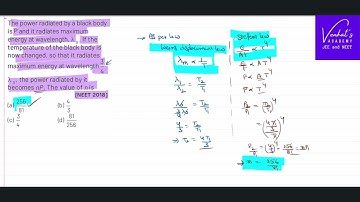 The power radiated by a black body
is P and it radiates maximum
energy at wavelength, λ₀. If the
temperature of the black body is
now changed, so that it radiates
maximum energy at wavelength 3/4
λ₀, the power radiated by it
becomes nP. The value of n is
[NEET 2018]
(a) 256/81 (b) 4/3
(c) 3/4 (d) 81/256
→ As per law
Wien's displacement law
λm ∝ 1/T
λ₁/λ₂ = T₂/T₁
4/3 = T₂/T₁
→ T₂ = 4T₁/3
Stefan's law
E/At ∝ T⁴
P ∝ A T⁴
P ∝ T⁴
P₂/P₁ = (T₂/T₁)⁴
P₂/P₁ = (4/3)⁴ = 256/81
→ n = 256/81
Venkat's
ACADEMY
JEE and NEET